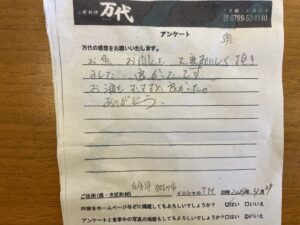 万代
0799-52-
アンケート
万代の感想をお願いいたします。
お魚、お肉も 大変おいしく 頂き
ました 良かったです
お酒も すすめ 良かった。
ありがとう。
兵庫県
ご住所(県・市区町村)
イニシャル T.M
日時
内容をホームページなどに掲載してもよろしいでしょうか? □はい □いいえ
アンケートと食事中の写真の掲載もよろしいでしょうか? □はい □いいえ